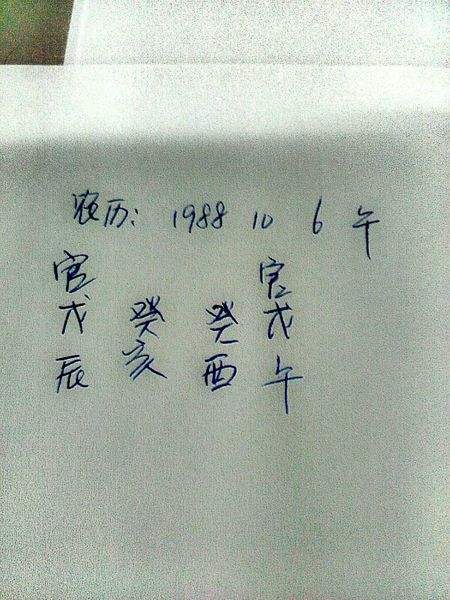 农历: 1988 10 6 午
官 官
戊 癸 癸 戊
辰 亥 酉 午